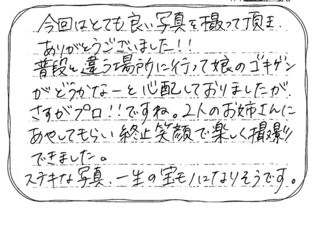 今回はとても良い写真を撮って頂き
ありがとうございました!!
普段と違う場所に行って娘のゴキゲン
がどうかなーと心配しておりましたが、
さすがプロ!!ですね。2人のお姉さんに
あやしてもらい終止笑顔で楽しく撮影
できました。
ステキな写真、一生の宝モノになりそうです。